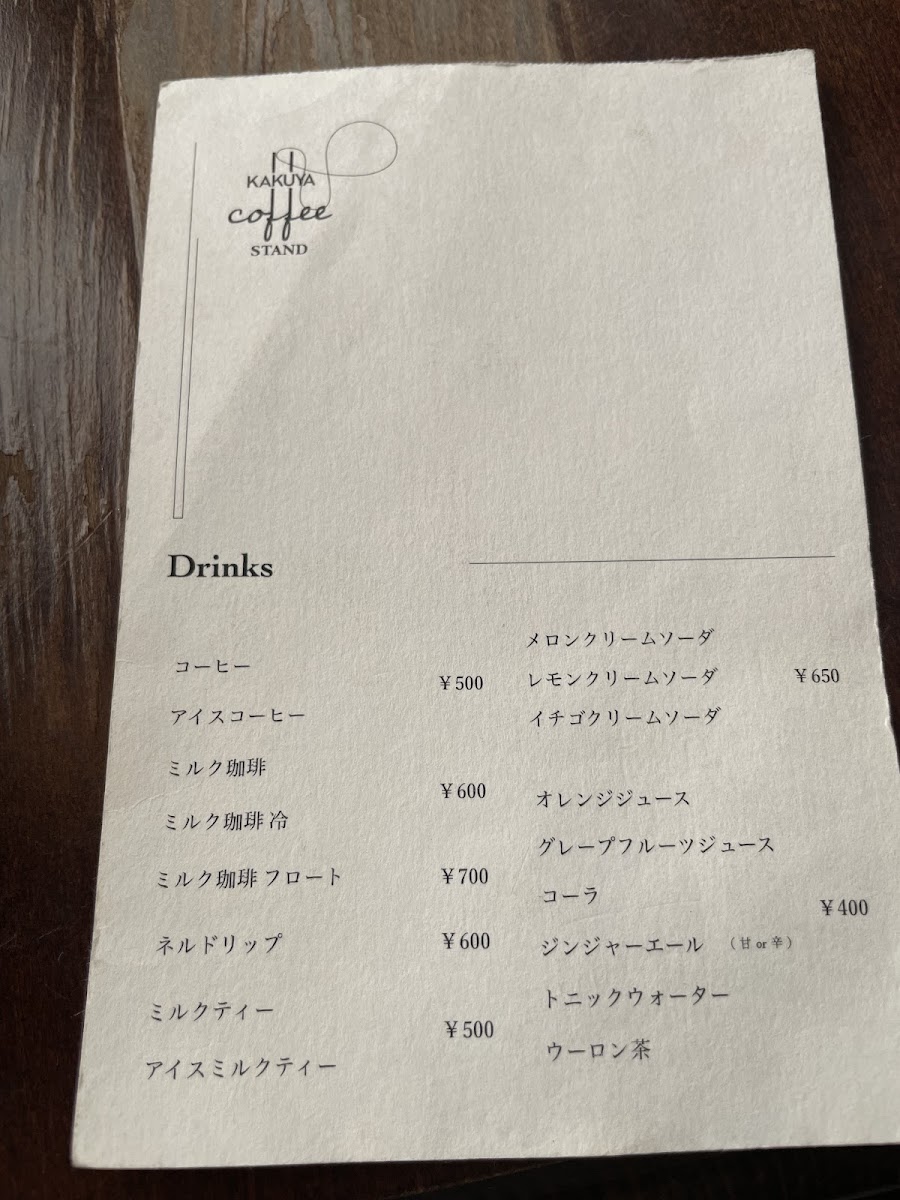 KAKUYA
coffee
STAND
Drinks
コーヒー
¥500
アイスコーヒー
ミルク珈琲
¥600
ミルク珈琲 冷
ミルク珈琲 フロート ¥700
ネルドリップ ¥600
ミルクティー
¥500
アイスミルクティー
メロンクリームソーダ
レモンクリームソーダ ¥650
イチゴクリームソーダ
オレンジジュース
グレープフルーツジュース
コーラ
¥400
ジンジャーエール （甘 or 辛）
トニックウォーター
ウーロン茶